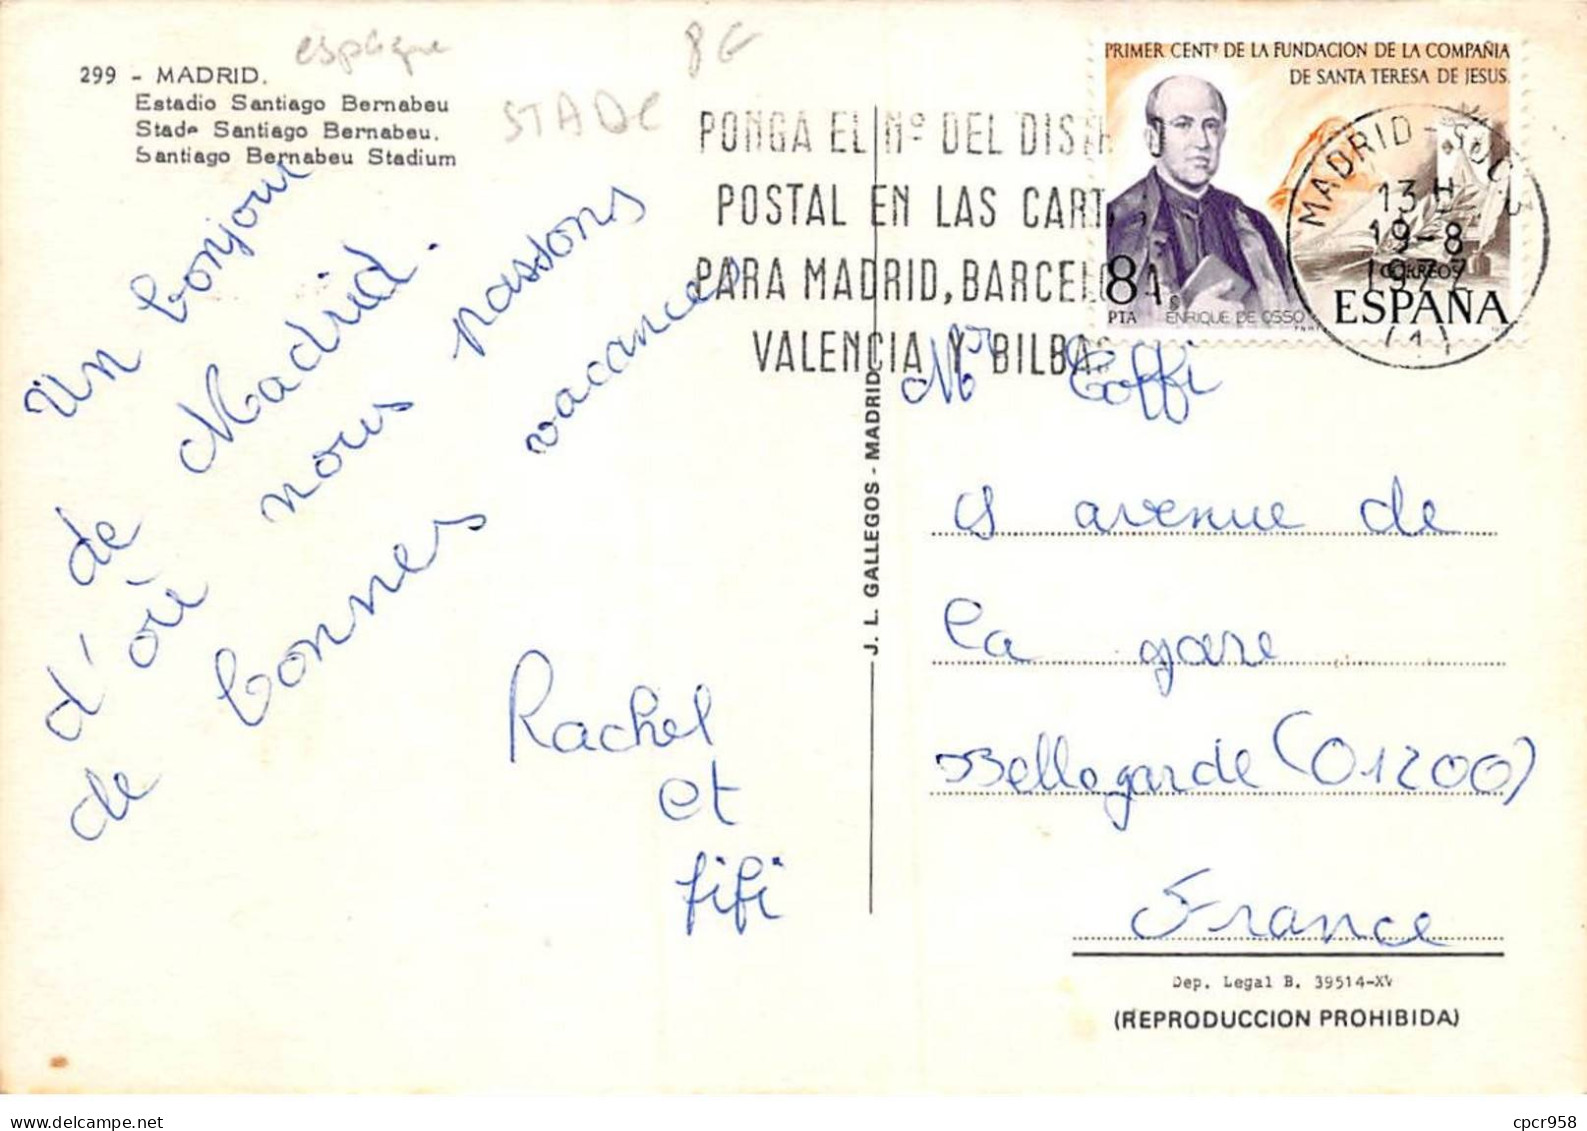 espagne
8€
STADE
299 - MADRID.
Estadio Santiago Bernabeu
Stade Santiago Bernabeu.
Santiago Bernabeu Stadium
Un bonjour
de Madrid.
d'où nous passons
de bonnes vacances
Rachel
et
fifi
J. L. GALLEGOS - MADRID
PONGA EL Nº DEL DIST
POSTAL EN LAS CART
PARA MADRID, BARCELO A,
VALENCIA Y BILBA
PRIMER CENTº DE LA FUNDACION DE LA COMPAÑIA
DE SANTA TERESA DE JESUS.
8
PTA
ENRIQUE DE OSSO
CORREOS
ESPAÑA
MADRID-SUC. 3
13 H
19-8
1977
(1)
Mr Coffi
avenue de
la gare
Bellegarde (01200)
France
Dep. Legal B. 39514-XV
(REPRODUCCION PROHIBIDA)
cpcr958